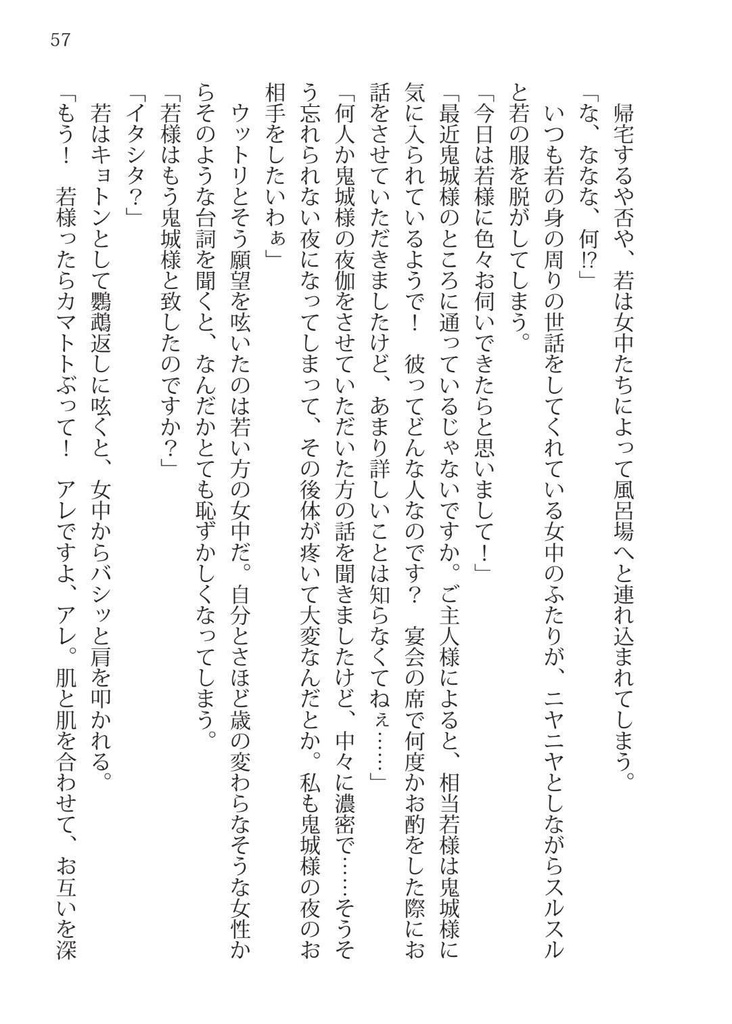 57
帰宅するや否や、若は女中たちによって風呂場へと連れ込まれてしまう。
「な、ななな、何⁉」
いつも若の身の周りの世話をしてくれている女中のふたりが、ニヤニヤとしながらスルスル
と若の服を脱がしてしまう。
「今日は若様に色々お伺いできたらと思いまして！」
「最近鬼城様のところに通っているじゃないですか。ご主人様によると、相当若様は鬼城様に
気に入られているようで！　彼ってどんな人なのです？　宴会の席で何度かお酌をした際にお
話をさせていただきましたけど、あまり詳しいことは知らなくてねぇ……」
「何人か鬼城様の夜伽をさせていただいた方の話を聞きましたけど、中々に濃密で……そうそ
う忘れられない夜になってしまって、その後体が疼いて大変なんだとか。私も鬼城様の夜のお
相手をしたいわぁ」
ウットリとそう願望を呟いたのは若い方の女中だ。自分とさほど歳の変わらなそうな女性か
らそのような台詞を聞くと、なんだかとても恥ずかしくなってしまう。
「若様はもう鬼城様と致したのですか？」
「イタシタ？」
若はキョトンとして鸚鵡返しに呟くと、女中からバシッと肩を叩かれる。
「もう！　若様ったらカマトトぶって！　アレですよ、アレ。肌と肌を合わせて、お互いを深